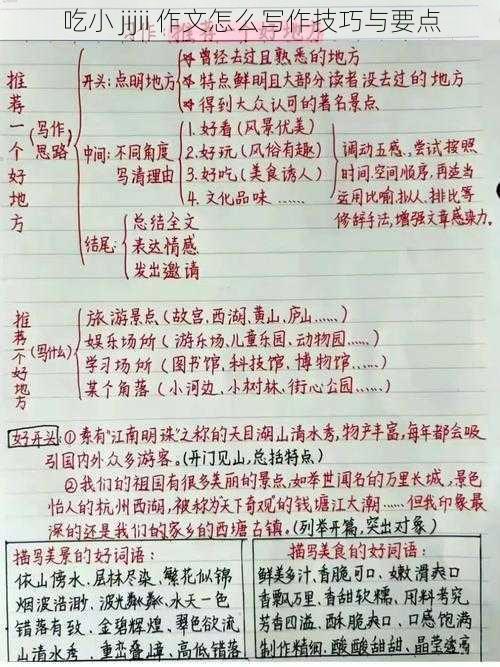 吃小 jjjjj 作文怎么写作技巧与要点
推荐一个好地方
(写作思路)
开头:点明地方
曾经去过且熟悉的地方
特点鲜明且大部分读者没去过的地方
得到大众认可的著名景点
中间:不同角度
写清理由
1.好看(风景优美)
2.好玩(风俗有趣)
3.好吃(美食诱人)
4.文化品味……
调动五感,尝试按照
时间.空间顺序,再适当
运用比喻.拟人.排比等
修辞手法,增强文章感染力。
结尾:
总结全文
表达情感
发出邀请
推荐一个好地方
(写什么)
旅游景点(故宫,西湖,黄山,庐山……)
娱乐场所(游乐场,儿童乐园、动物园……)
学习场所(图书馆,科技馆,博物馆……)
某个角落(小河边、小树林、街心公园……)
好开头:①素有"江南明珠"之称的天目湖山清水秀,物产丰富,每年都会吸
引国内外众多游客。(开门见山,总括特点)
②我们的祖国有很多美丽的景点,如举世闻名的万里长城,景色
怡人的杭州西湖,被称为"天下奇观"的钱塘江大潮……但我印象最
深的还是我们的家乡的西塘古镇。(列举开篇,突出对象)
描写美景的好词语:
依山傍水、层林尽染、繁花似锦
烟波浩渺、波光粼粼、水天一色
错落有致、金碧辉煌、翠色欲流
山清水秀、重峦叠嶂、高低错落
描写美食的好词语:
鲜美多汁、香脆可口、嫩滑爽口
香飘万里、香甜软糯、用料考究
芳香四溢、酥脆爽口、口感饱满
制作精细、酸酸甜甜、晶莹透亮